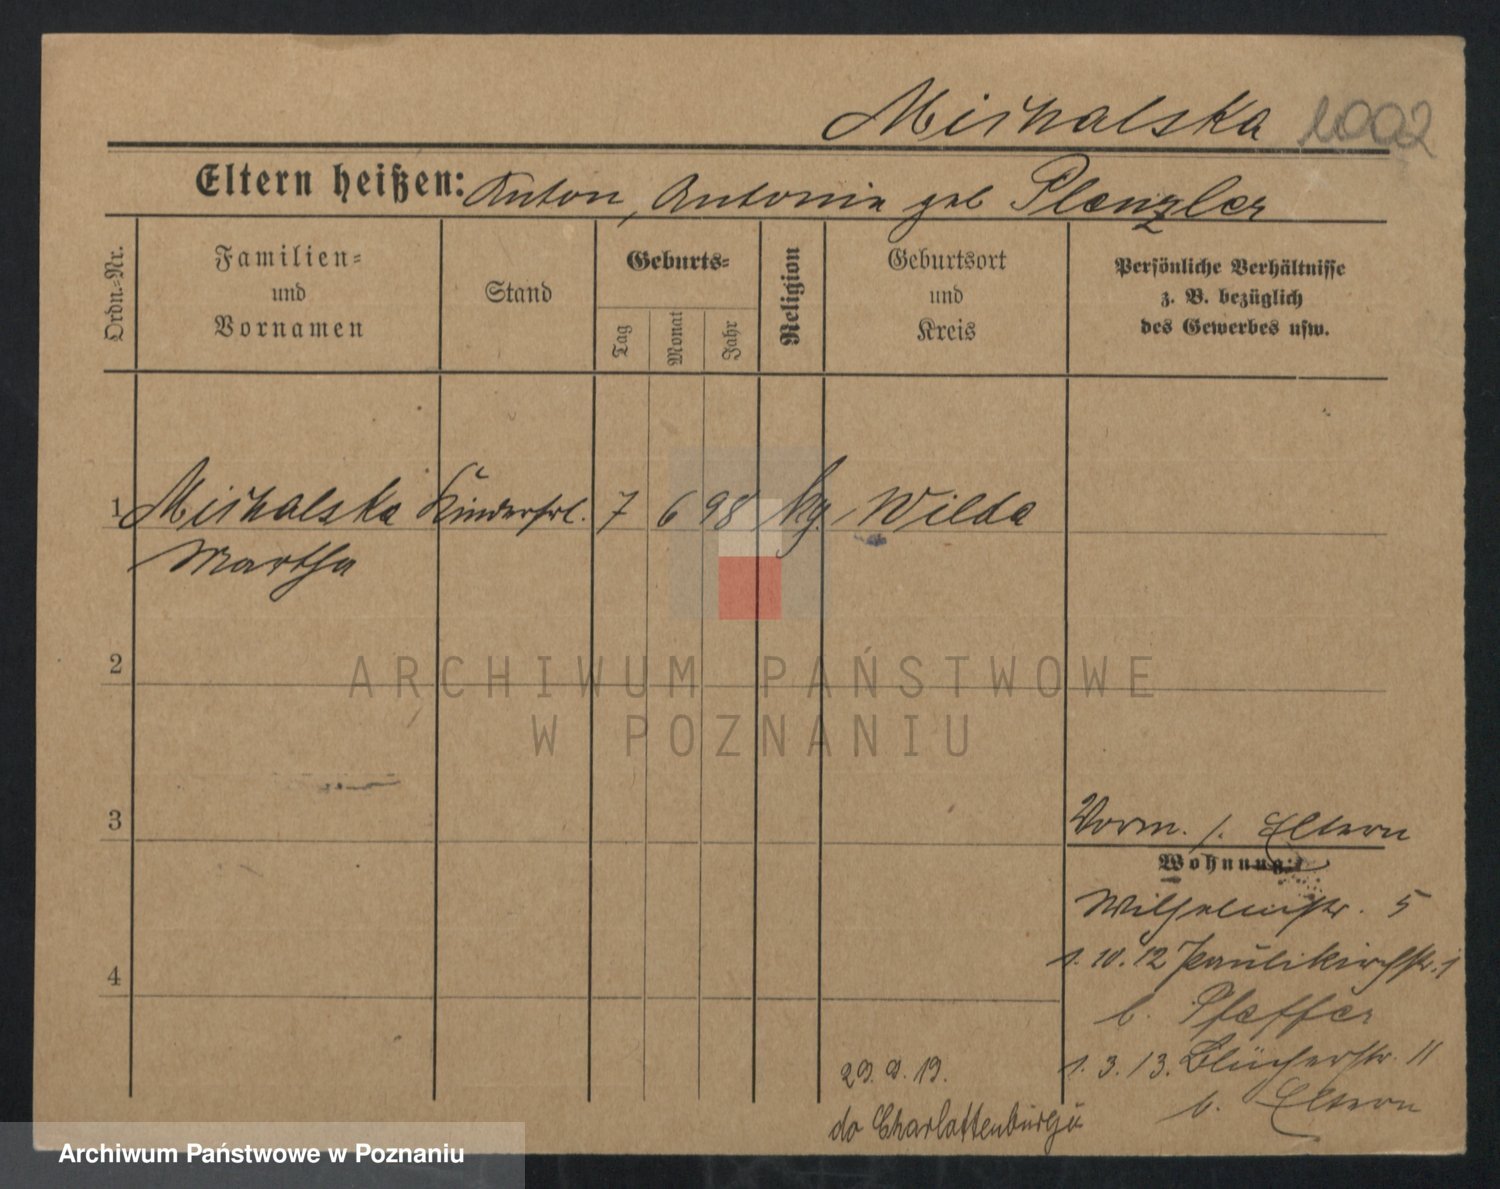 Michalska 1002
Eltern heißen: Anton, Antonie geb Plenzler
Ordn.-Nr.
Familien-
und
Vornamen
Stand
Geburts-
Tag
Monat
Jahr
Religion
Geburtsort
und
Kreis
Persönliche Verhältnisse
z. B. bezüglich
des Gewerbes usw.
1 Michalska Kinderfrl. 7 6 98 kg. Wilda
Martha
2
ARCHIWUM PAŃSTWOWE
W POZNANIU
3
Vorm. s. Eltern
Wohnung:
Wilhelmstr. 5
1.10.12 Paulikirchstr. 1
b. Pfeffer
1.3.13. Blücherstr. 11
b. Eltern
4
29. 9. 19.
do Charlottenburga
Archiwum Państwowe w Poznaniu